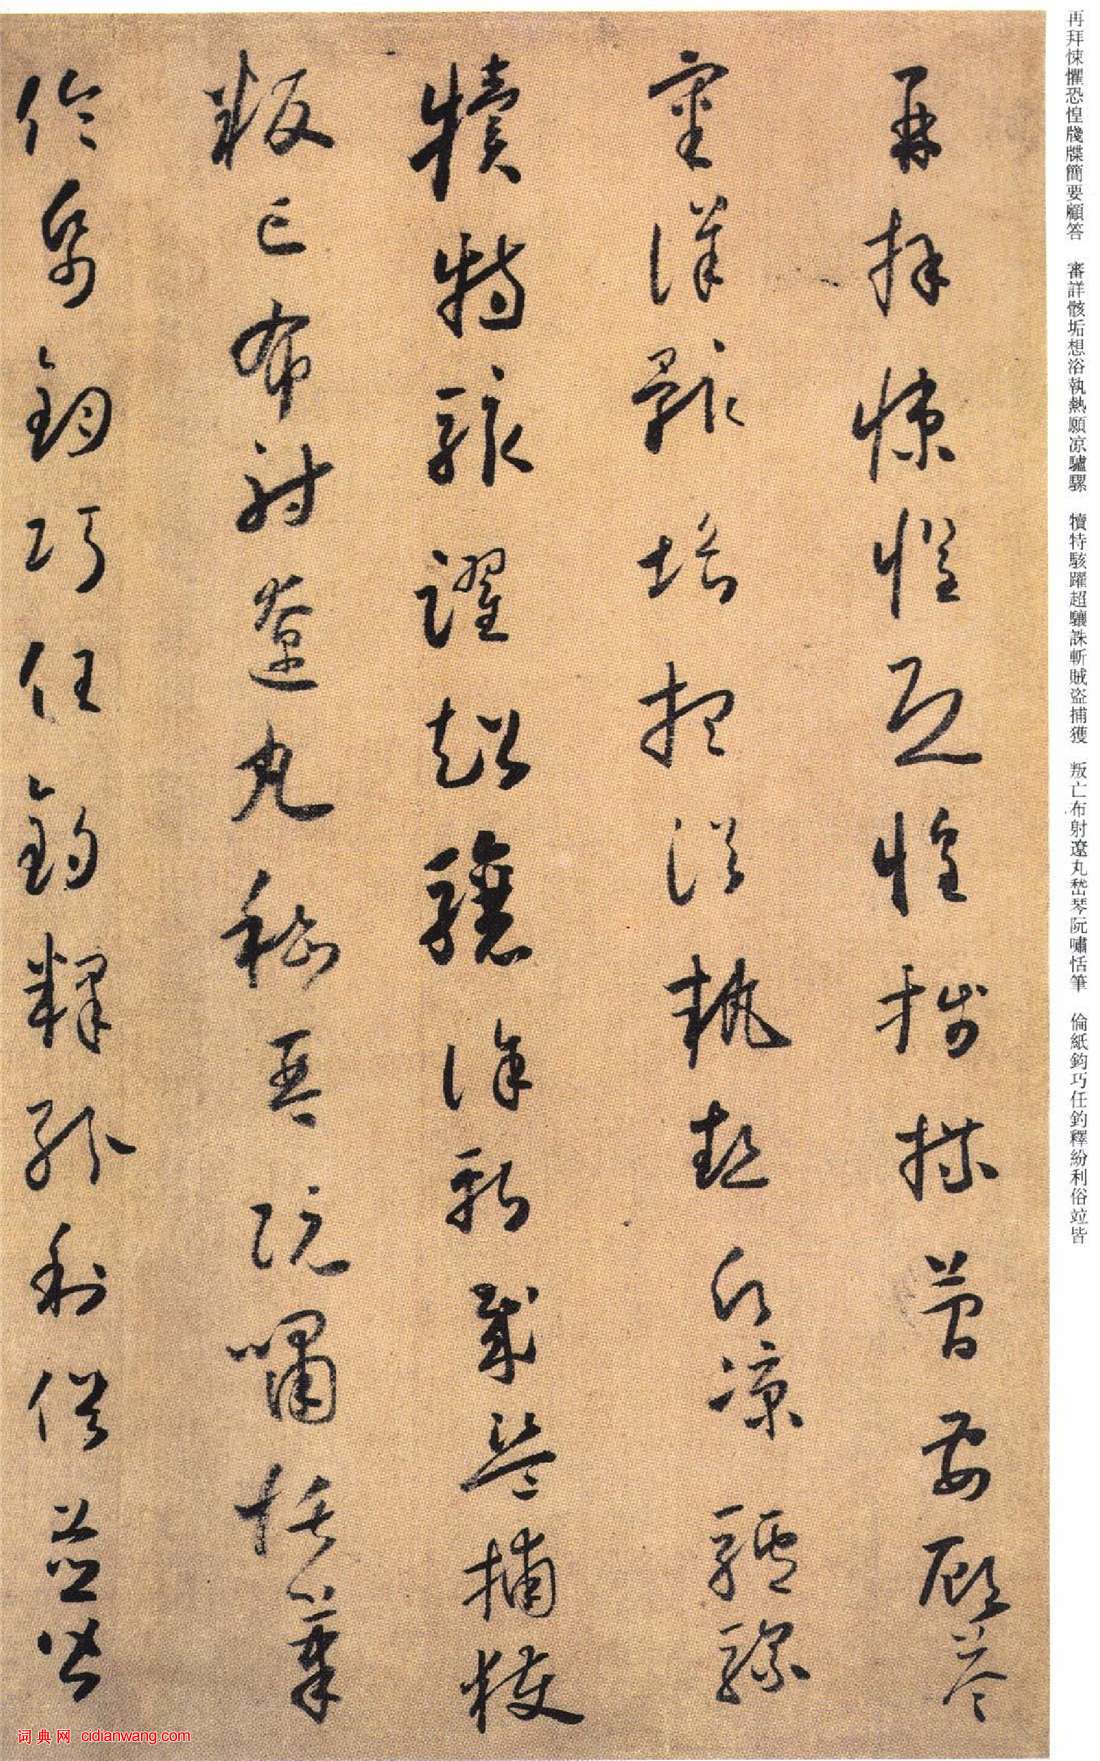 再拜悚懼恐惶牋牒簡要顧答
審詳骸垢想浴執熱願凉驢騾
犢特駭躍超驤誅斬賊盜捕獲
叛亡布射遼丸嵇琴阮嘯恬筆
倫紙鈞巧任釣釋紛利俗竝皆
再拜悚懼恐惶牋牒簡要顧答 審詳骸垢想浴執熱願凉驢騾 犢特駭躍超驤誅斬賊盜捕獲 叛亡布射遼丸嵇琴阮嘯恬筆 倫紙鈞巧任釣釋紛利俗竝皆
词典网 cidianwang.com